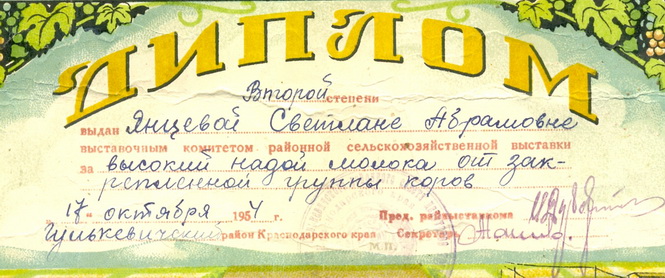 ДИПЛОМ
Второй степени
выдан Янцевой Светлане Абрамовне
выставочным комитетом районной сельскохозяйственной выставки
за высокий надой молока от зак-
репленной группы коров
"17" октября 1954 г. Пред. райвыставкома
Гулькевичский район Краснодарского края Секретарь
М.П.